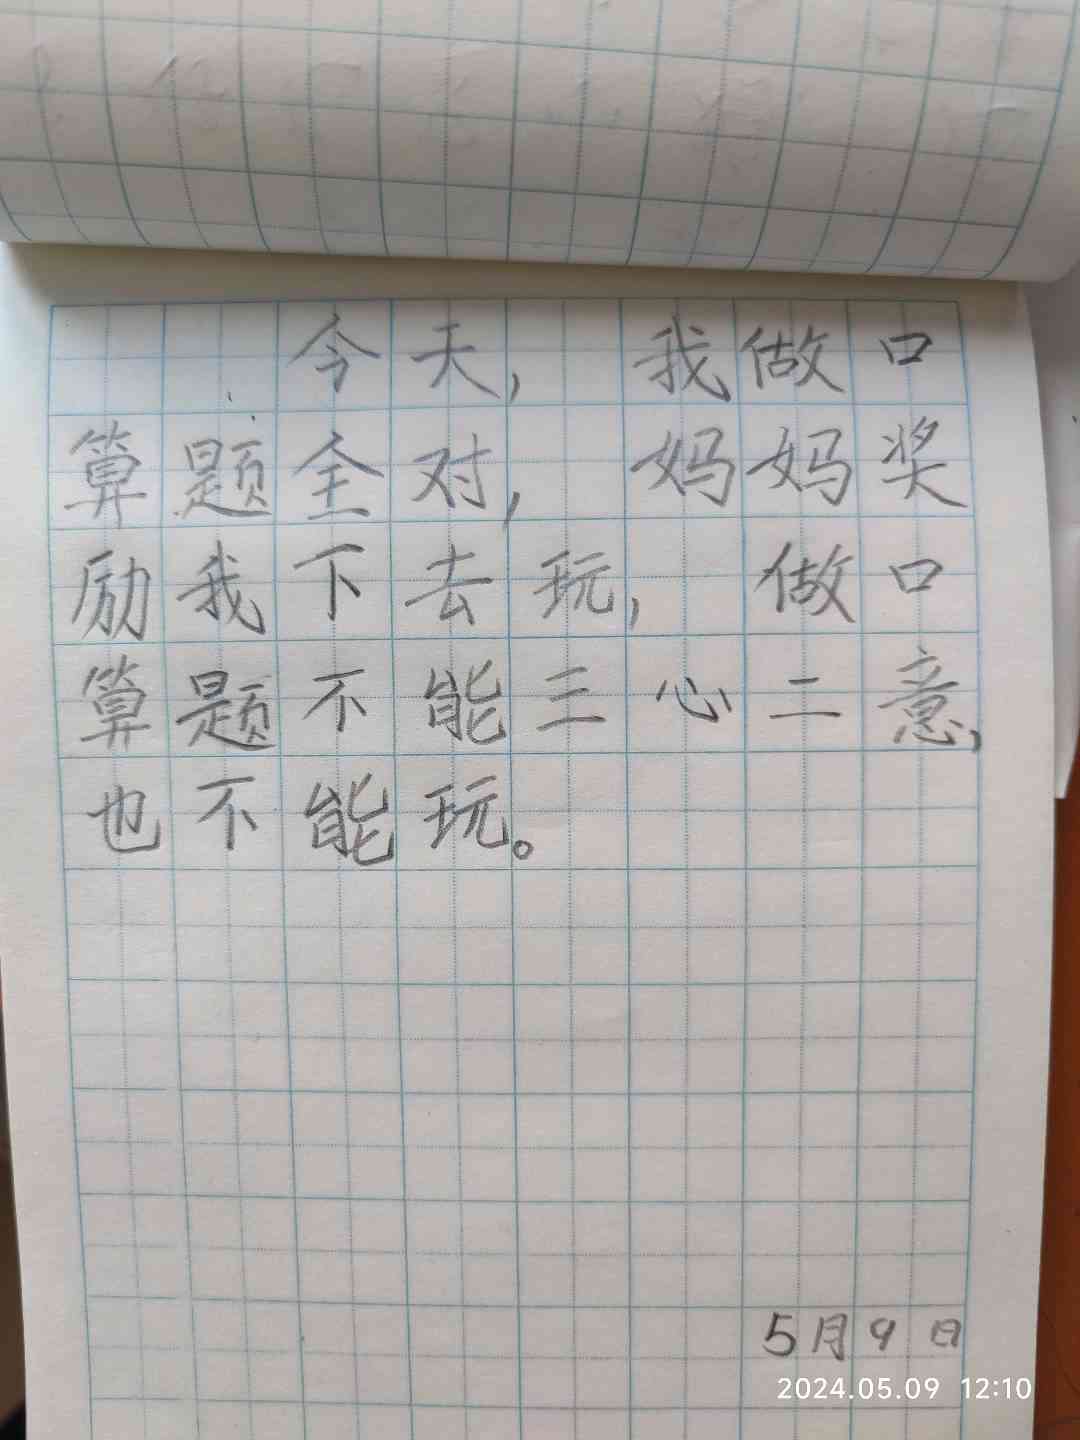 今天，我做口
算题全对，妈妈奖
励我下去玩，做口
算题不能三心二意，
也不能玩。
5月9日
2024.05.09 12:10